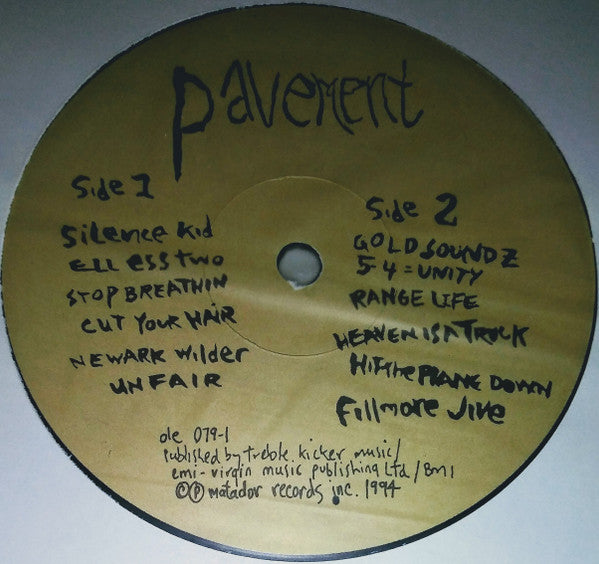 pavement
Side 1
Silence Kid
ELL ESS TWO
STOP BREATHIN
CUT YOUR HAIR
NEWARK Wilder
UNFAIR
Side 2
GOLD SOUNDZ
5-4=UNITY
RANGE LIFE
HEAVEN IS A TRUCK
HIT the PLANE DOWN
Fillmore Jive
ole 079-1
published by treble kicker music/
emi-virgin music publishing Ltd/BMI
©℗ matador records inc. 1994